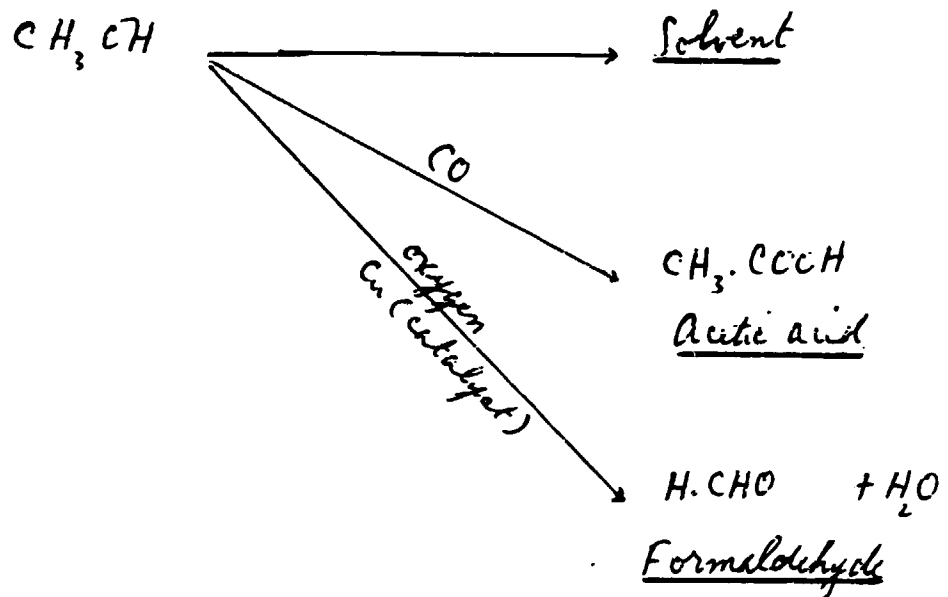 CH₃OH
Solvent
CO
CH₃.COOH
Acetic acid
oxygen
Cu (catalyst)
H.CHO + H₂O
Formaldehyde